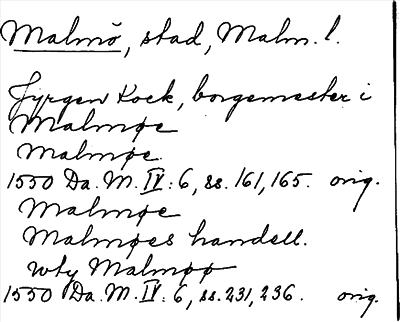 Malmö, stad, Malm. l.
Jyrgen Kock, borgemester i
Malmøe
Malmøe
1550 Da. M. IV: 6, ss. 161, 165. orig.
Malmøe
Malmøes handell.
wty Malmøø
1550 Da. M. IV: 6, ss. 231, 236. orig.